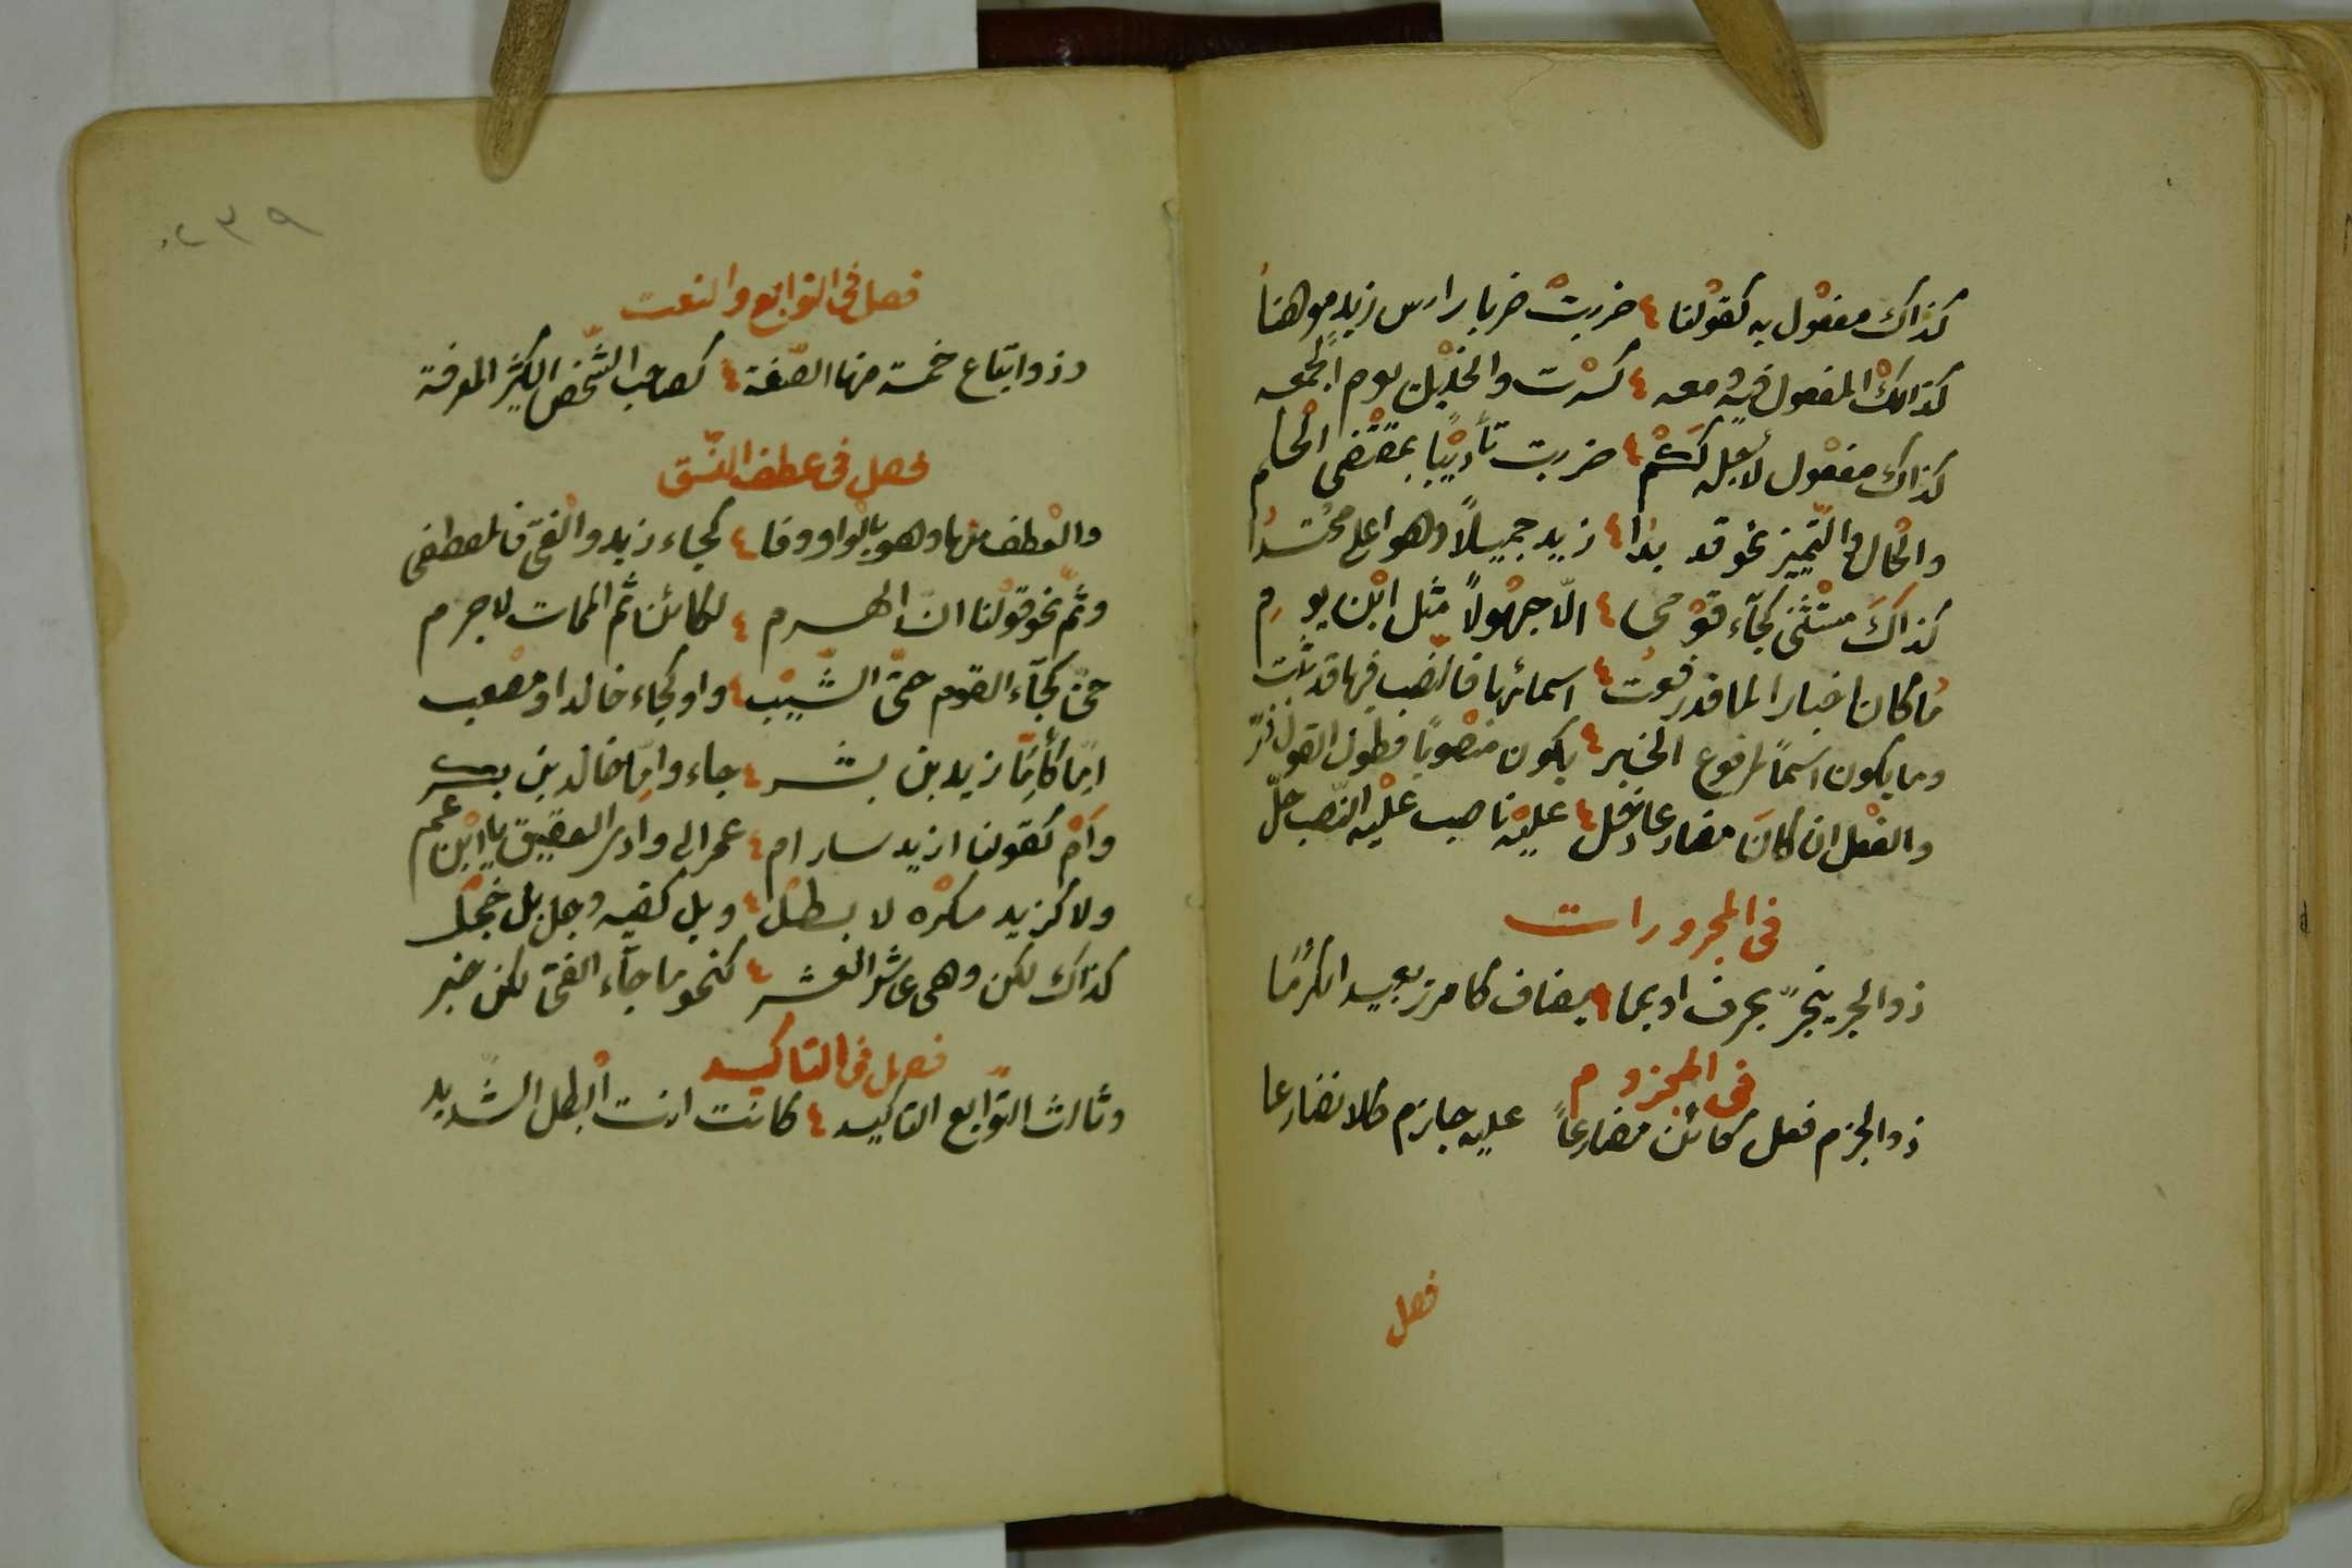 كذاك مفعول به كقولنا ضربت ضربا راس زيد موهنا
كذالك المفعول فيه معه كسرت والخليل يوم الجمعه
كذاك مفعول لأجله كشم ضربت تأديبًا بمقتضى الحكم
والحال والتمييز نحو قد بدا زيد جميلًا وهو اعلى محتدا
كذاك مستثنى كجآء قومى الّا جهولًا مثل ابن يوم
ما كان اخبارا لما قد رفعت اسمائها فالنصب فيها قد ثبت
وما يكون اسمًا لمرفوع الخبر يكون منصوبًا فطول القول ذر
والفعل ان كان مضارعا دخل عليه ناصب عليه النصب حلّ
فى المجرورات
ذو الجر ينجرّ بحرف او بما يضاف كامرر بعبيد الكرمَا
فى المجزوم
ذو الجزم فعل كائن مضارعًا عليه جازم كلا تضارعا
فصل
٢٣٩
فصل فى التوابع والنعت
وذو اتباع خمسة منها الصّفة كصاحب الشّخص الكثير المعرفة
فصل فى عطف النسق
والعطف منها وهو بالواو وفا كجاء زيد والفتى فالمصطفى
وثمّ نحو قولنا انّ الهرم لكائن ثم الممات لا جرم
حتى كجآء القوم حتّى الشّيب واو كجاء خالد او مصعب
امّا كأمّا زيد بن بشر جاء وامّا خالد بن بكر
وأم كقولنا ازيد سار ام عمر الى وادى العقيق يا ابن عم
ولا كزيد مكره لا بطل وبل كفيه وجل بل خجل
كذاك لكن وهى عاشر العشر كنحو ما جآء الفتى لكن خبر
فصل فى التاكيد
وثالث التوابع التاكيد كانت انت البطل الشديد